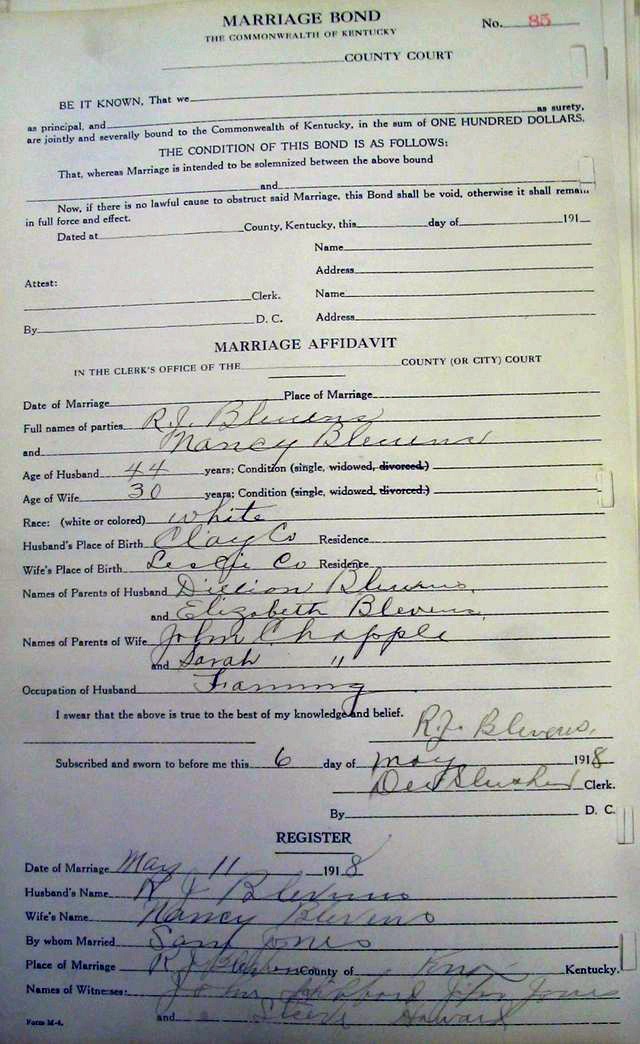 MARRIAGE BOND
No. 85
THE COMMONWEALTH OF KENTUCKY
COUNTY COURT
BE IT KNOWN, That we
as principal, and as surety,
are jointly and severally bound to the Commonwealth of Kentucky, in the sum of ONE HUNDRED DOLLARS.
THE CONDITION OF THIS BOND IS AS FOLLOWS:
That, whereas Marriage is intended to be solemnized between the above bound
and
Now, if there is no lawful cause to obstruct said Marriage, this Bond shall be void, otherwise it shall remain
in full force and effect.
Dated at County, Kentucky, this day of 191
Name
Address
Attest:
Clerk. Name
By D. C. Address
MARRIAGE AFFIDAVIT
IN THE CLERK'S OFFICE OF THE COUNTY (OR CITY) COURT
Date of Marriage Place of Marriage
Full names of parties R.J. Blevens
and Nancy Blevens
Age of Husband 44 years; Condition (single, widowed, divorced.)
Age of Wife 30 years; Condition (single, widowed, divorced.)
Race: (white or colored) white
Husband's Place of Birth Clay Co Residence
Wife's Place of Birth Leslie Co Residence
Names of Parents of Husband Dillion Blevens,
and Elizabeth Blevens,
Names of Parents of Wife John Chapple
and Sarah "
Occupation of Husband Farming
I swear that the above is true to the best of my knowledge and belief.
R.J. Blevens,
Subscribed and sworn to before me this 6 day of May 1918
Dee Slusher Clerk.
By D. C.
REGISTER
Date of Marriage May 11 1918
Husband's Name R J Blevens
Wife's Name Nancy Blevens
By whom Married Sam Jones
Place of Marriage R J County of Knox Kentucky.
Names of Witnesses: John Hibbard Jones
and Steve Howard
Form M-4.